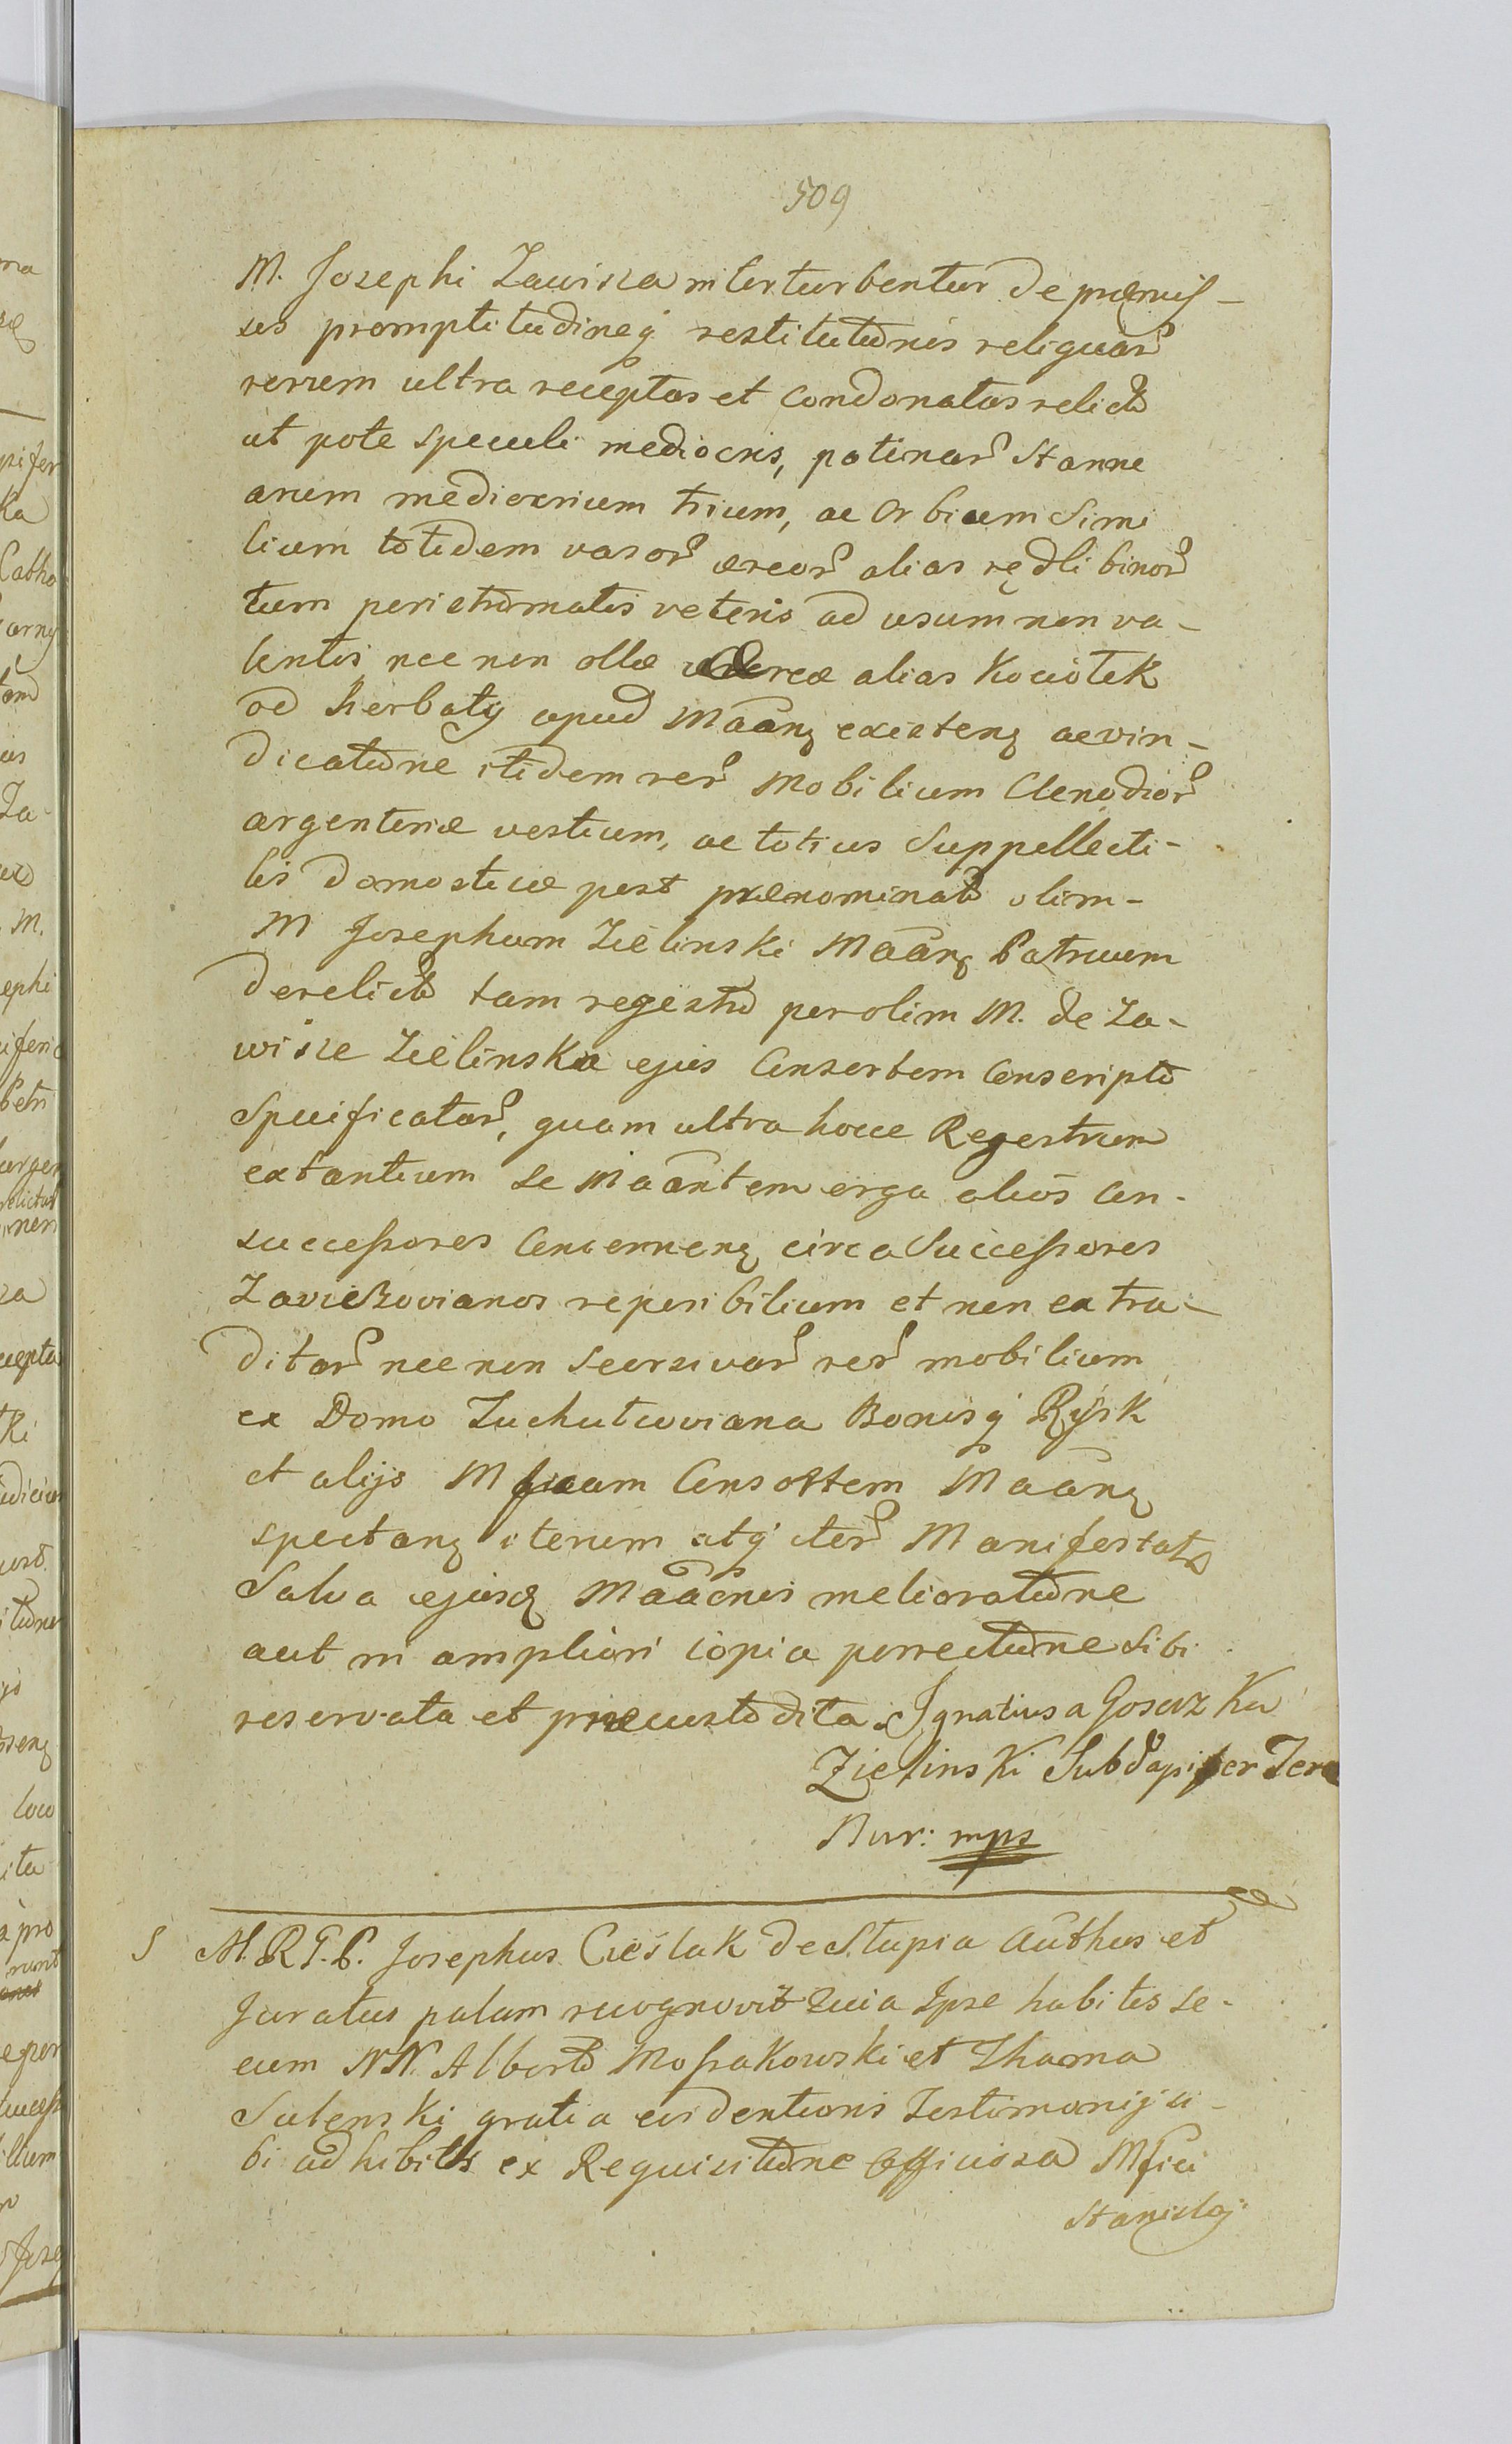 509
M. Josephi Zawisza interturbentur de præmis-
sis promptitudineq restitutionis reliquar
rerum ultra receptas et Condonatas relicta
ut pote Speculi mediocris, patinar Stanne
arum mediocrium trium, ac Orbium Simi
lium totidem vasor æreor alias rędli binor
tum peristromatis veteris ad usum non va-
lentis nec non ollæ æreæ alias Kociołek
od herbaty apud Maang existenq ac vin-
dicatione itidem rer Mobilium Clenodior
argenteriæ vestium, ac totius Suppellecti-
lis domesticæ post prænominat olim-
M Josephum Zieliński Maanq Patruum
derelict tam regestro per olim M. de Za-
wisze Zielinska ejus Consortem Conscripto
Specificatar, quam ultra hocce Regestrum
extantium Se Maantem erga alios Con-
successores Concernenq circa Successores
Zawiszovianos reperibilium et non extra-
ditar nec non Seorsivar rer mobilium
ex Domo Zuchutoviana Bonisq Rysk
et alijs M suam Consortem Maanq
spectanq iterum atq iter Manifestat
Salva ejusq Maacnis melioratione
aut in ampliori copia porrectione Sibi
reservata et præcustodita. Ignatius a Gosczk Ka
Zielinski Subdapifer Teræ
Nur: mps
S M. R G. P. Josephus Cieślak de Słupia Authus et
Juratus palam recognovit Quia Ipse habitis se-
cum NN. Alberto Mossakowski et Thoma
Sulenski gratia evidentioris Testimonij si-
bi adhibitis ex Requisitione Officiosa Mfici
Stanislaj